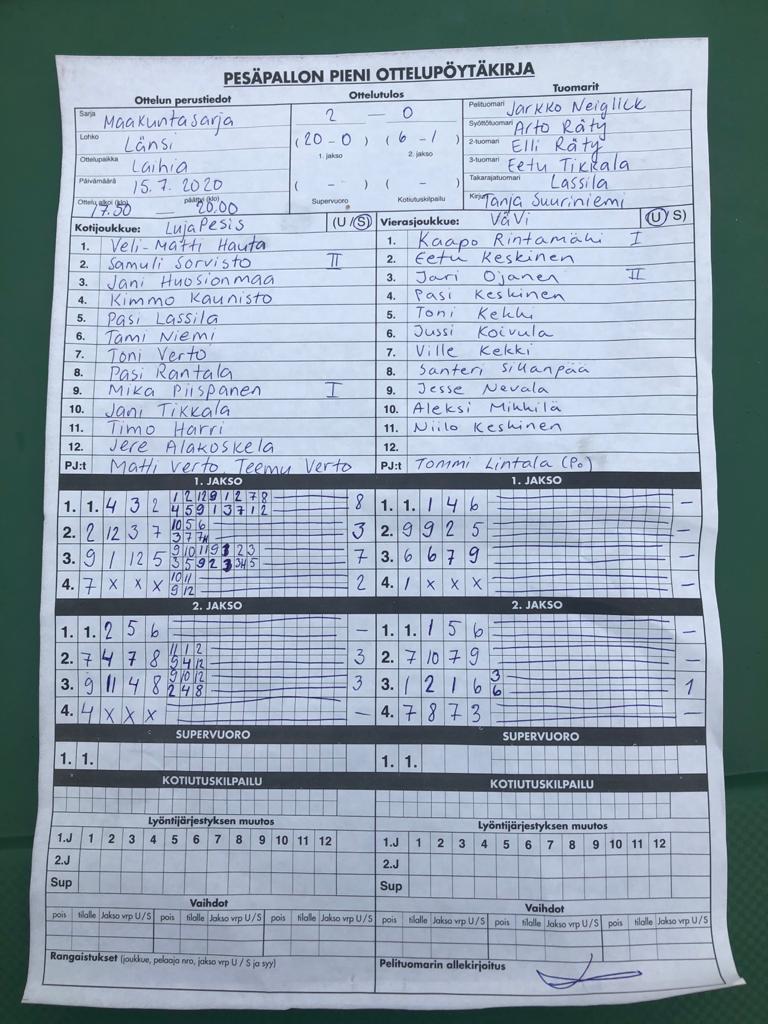 PESÄPALLON PIENI OTTELUPÖYTÄKIRJA
Ottelun perustiedot
Sarja Maakuntasarja
Lohko Länsi
Ottelupaikka Laihia
Päivämäärä 15.7.2020
Ottelu alkoi (klo) 17.50 — päättyi (klo) 20.00
Ottelutulos
2 — 0
(20 - 0) (6 - 1)
1. jakso 2. jakso
( - ) ( - )
Supervuoro Kotiutuskilpailu
Tuomarit
Pelituomari Jarkko Neiglick
Syöttötuomari Arto Räty
2-tuomari Elli Räty
3-tuomari Eetu Tikkala
Takarajatuomari Lassila
Kirjuri Tanja Suuriniemi
Kotijoukkue: LujaPesis (U/S)
1. Veli-Matti Hauta
2. Samuli Sorvisto II
3. Jani Huosionmaa
4. Kimmo Kaunisto
5. Pasi Lassila
6. Tami Niemi
7. Toni Verto
8. Pasi Rantala
9. Mika Piispanen I
10. Jani Tikkala
11. Timo Harri
12. Jere Alakoskela
PJ:t Matti Verto, Teemu Verto
Vierasjoukkue: VäVi (U/S)
1. Kaapo Rintamäki I
2. Eetu Keskinen
3. Jari Ojanen II
4. Pasi Keskinen
5. Toni Kekki
6. Jussi Koivula
7. Ville Kekki
8. Santeri Sillanpää
9. Jesse Nevala
10. Aleksi Mikkilä
11. Niilo Keskinen
12.
PJ:t Tommi Lintala (Po)
1. JAKSO
1. 1. 4 3 2 1 2 12 9 1 2 7 8 8
4 5 9 1 3 7 1 2
2. 2 12 3 7 10 5 6 3
3 7
3. 9 1 12 5 9 10 11 9 2 3 7
3 5 9 2 3
4. 7 x x x 10 11 2
9 12
1. JAKSO
1. 1. 1 4 6 —
2. 9 9 2 5 —
3. 6 6 7 9 —
4. 1 x x x —
2. JAKSO
1. 1. 2 5 6 —
2. 7 4 7 8 11 1 2 3
9 4 12
3. 9 11 4 8 9 10 12 3
2 4 8
4. 4 x x x —
2. JAKSO
1. 1. 1 5 6 —
2. 7 10 7 9 —
3. 1 2 1 6 3 1
6
4. 7 8 7 3 —
SUPERVUORO
1. 1.
SUPERVUORO
1. 1.
KOTIUTUSKILPAILU
KOTIUTUSKILPAILU
Lyöntijärjestyksen muutos
1.J 1 2 3 4 5 6 7 8 9 10 11 12
2.J
Sup
Lyöntijärjestyksen muutos
1.J 1 2 3 4 5 6 7 8 9 10 11 12
2.J
Sup
Vaihdot
pois tilalle Jakso vrp U/S pois tilalle Jakso vrp U/S pois tilalle Jakso vrp U/S
Vaihdot
pois tilalle Jakso vrp U/S pois tilalle Jakso vrp U/S pois tilalle Jakso vrp U/S
Rangaistukset (joukkue, pelaaja nro, jakso vrp U / S ja syy)
Pelituomarin allekirjoitus